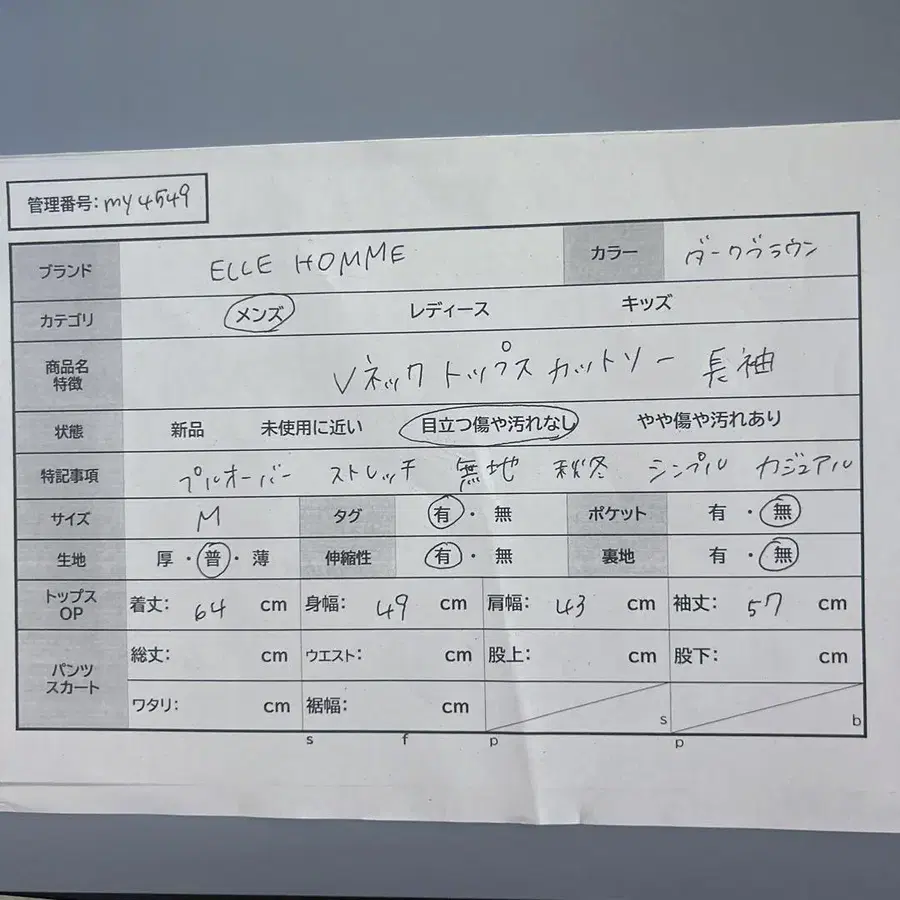 管理番号: my4549
ブランド ELLE HOMME カラー ダークブラウン
カテゴリ メンズ レディース キッズ
商品名 特徴 Vネック トップス カットソー 長袖
状態 新品 未使用に近い 目立つ傷や汚れなし やや傷や汚れあり
特記事項 プルオーバー ストレッチ 無地 秋冬 シンプル カジュアル
サイズ M タグ 有・無 ポケット 有・無
生地 厚・普・薄 伸縮性 有・無 裏地 有・無
トップス OP 着丈: 64 cm 身幅: 49 cm 肩幅: 43 cm 袖丈: 57 cm
パンツ スカート 総丈: cm ウエスト: cm 股上: cm 股下: cm
ワタリ: cm 裾幅: cm s b
s f p p